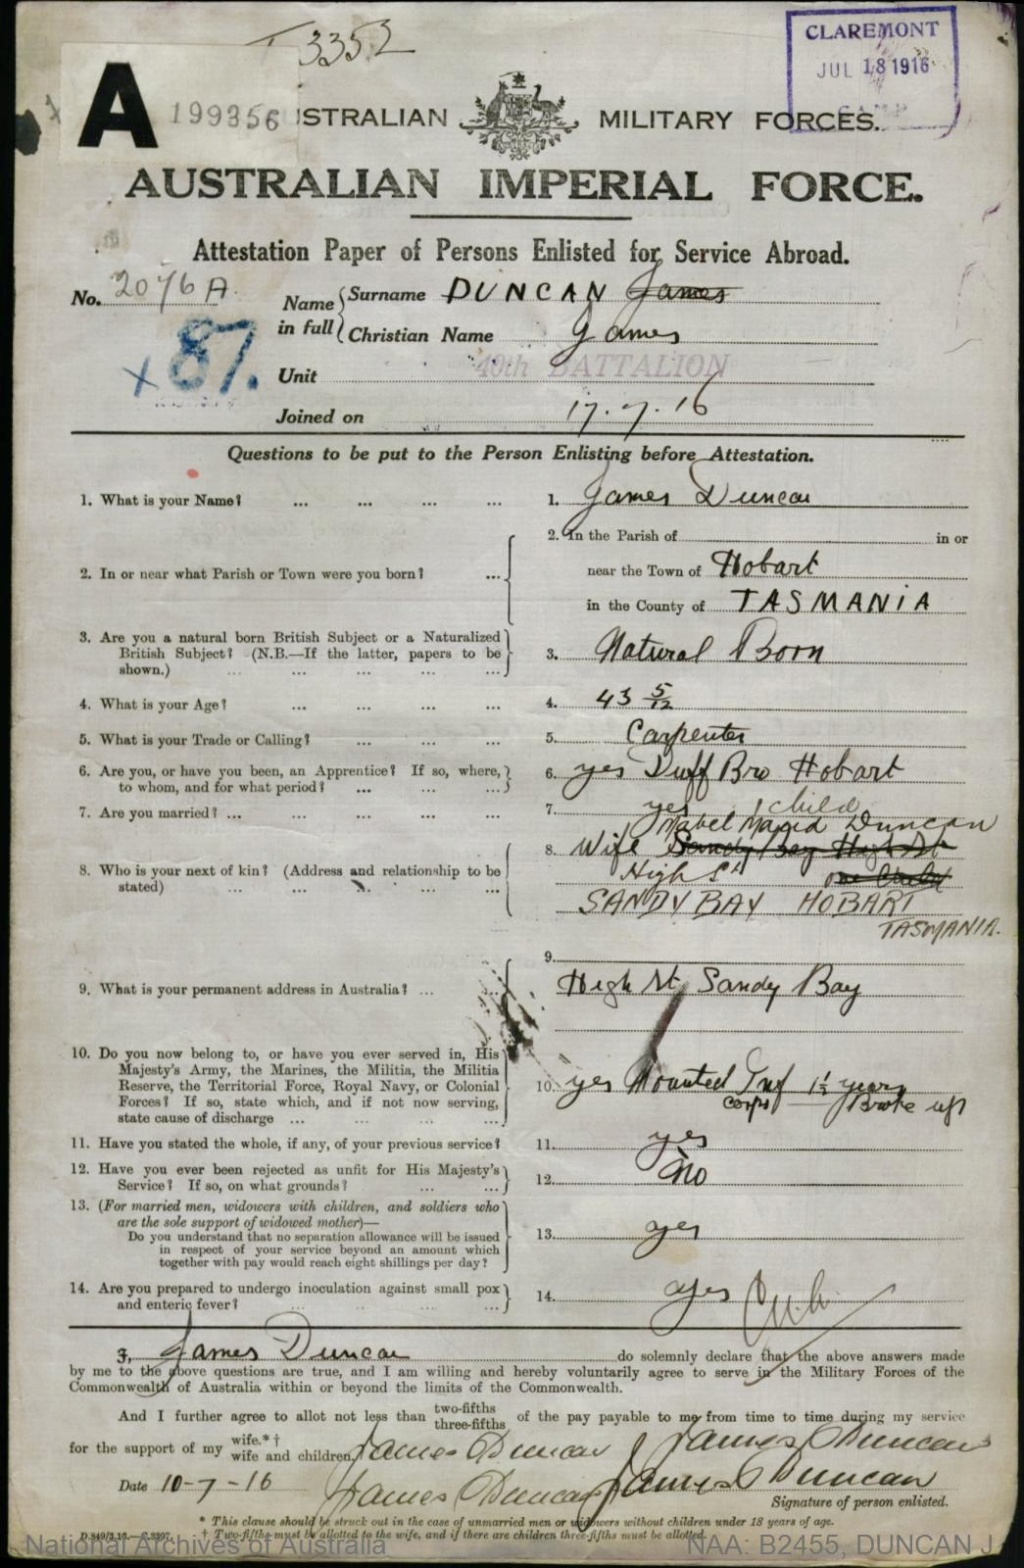 3352
CLAREMONT
JUL 18 1916
CAMP
A 199356 STRALIAN MILITARY FORCES.
AUSTRALIAN IMPERIAL FORCE.
Attestation Paper of Persons Enlisted for Service Abroad.
No. 2076A
Name in full
Surname DUNCAN James
Christian Name James
x 87.
Unit 40th BATTALION
Joined on 17.7.16
Questions to be put to the Person Enlisting before Attestation.
1. What is your Name? ... ... ... ... 1. James Duncan
2. In or near what Parish or Town were you born? ... 2. In the Parish of in or
near the Town of Hobart
in the County of TASMANIA
3. Are you a natural born British Subject or a Naturalized
British Subject? (N.B.—If the latter, papers to be
shown.) ... ... ... ... 3. Natural Born
4. What is your Age? ... ... ... ... 4. 43 5/12
5. What is your Trade or Calling? ... ... ... 5. Carpenter
6. Are you, or have you been, an Apprentice? If so, where,
to whom, and for what period? ... ... ... 6. yes Duff Bro Hobart
7. Are you married? ... ... ... ... 7. yes 1 child
8. Who is your next of kin? (Address and relationship to be
stated) ... ... ... ... 8. Wife Mabel Duncan
Sandy Bay High St
High St one child
SANDY BAY HOBART
TASMANIA.
9. What is your permanent address in Australia? ... 9.
High St Sandy Bay
10. Do you now belong to, or have you ever served in, His
Majesty's Army, the Marines, the Militia, the Militia
Reserve, the Territorial Force, Royal Navy, or Colonial
Forces? If so, state which, and if not now serving,
state cause of discharge ... ... ... ... 10. yes Mounted Inf 1½ years
corps Broke up
11. Have you stated the whole, if any, of your previous service? 11. yes
12. Have you ever been rejected as unfit for His Majesty's
Service? If so, on what grounds? ... ... 12. No
13. (For married men, widowers with children, and soldiers who
are the sole support of widowed mother)—
Do you understand that no separation allowance will be issued
in respect of your service beyond an amount which
together with pay would reach eight shillings per day? 13. yes
14. Are you prepared to undergo inoculation against small pox
and enteric fever? ... ... ... 14. yes
I, James Duncan do solemnly declare that the above answers made
by me to the above questions are true, and I am willing and hereby voluntarily agree to serve in the Military Forces of the
Commonwealth of Australia within or beyond the limits of the Commonwealth.
And I further agree to allot not less than two-fifths three-fifths of the pay payable to me from time to time during my service
for the support of my wife.*† wife and children James Duncan James Duncan
Date 10-7-16 James Duncan James Duncan
Signature of person enlisted.
* This clause should be struck out in the case of unmarried men or widowers without children under 18 years of age.
† Two-fifths must be allotted to the wife, and if there are children three-fifths must be allotted.
National Archives of Australia NAA: B2455, DUNCAN J